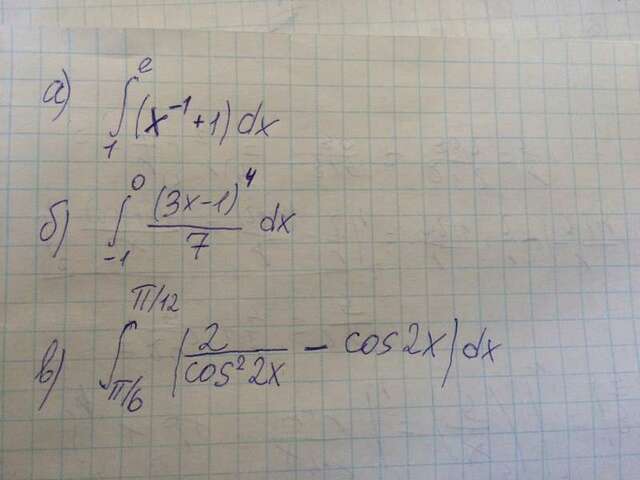 а) ∫₁ᵉ (x⁻¹+1) dx
б) ∫₋₁⁰ (3x-1)⁴/7 dx
в) ∫_{π/6}^{π/12} (2/cos²2x - cos2x) dx